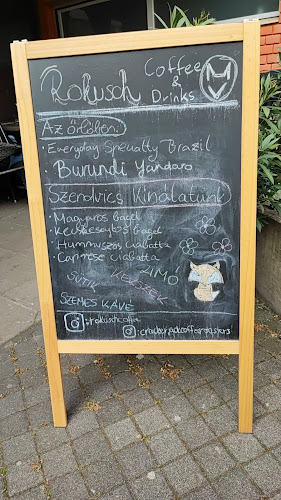 Rokusch Coffee & Drinks
Az őrlőben:
• Everyday Specialty Brazil
• Burundi Yandaro
Szendvics Kínálatunk
• Magyaros bagel
• Kecskesajtos bagel
• Hummuszos ciabatta
• Caprese ciabatta
SÜTIK KEKSZEK
SZEMES KÁVÉ
:rokuschcoffee